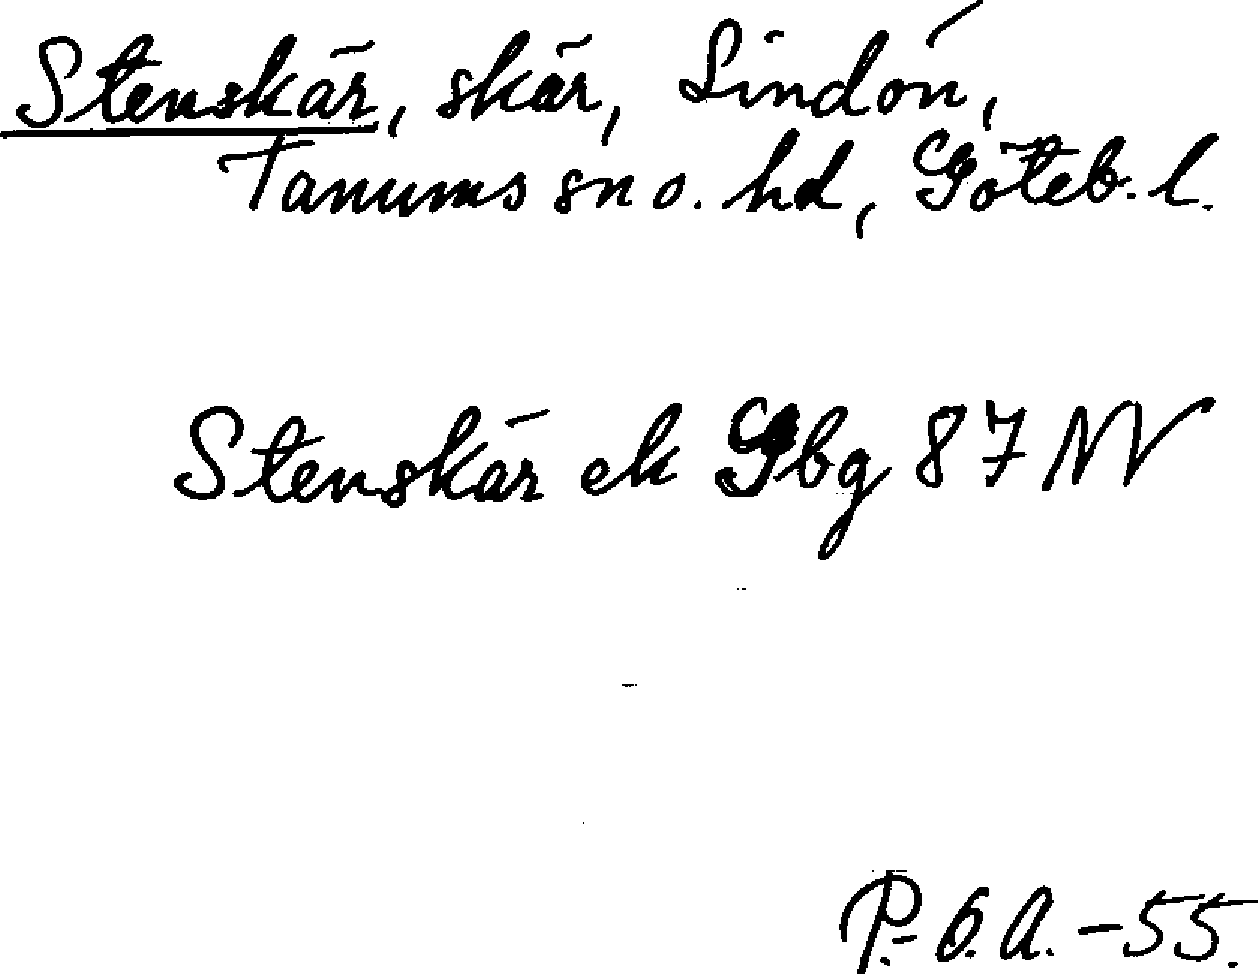 Stenskär, skär, Lindön,
Tanums sn o. hd, Göteb. l.
Stenskär ek Gbg 87 NV
P.-O.A. -55.